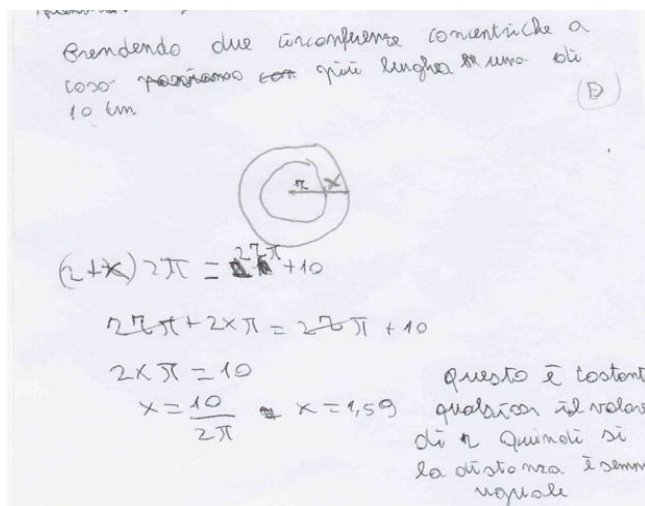 Prendendo due circonferenze concentriche a
caso più lunghe una di
10 km
D
r x
(r+x) 2π = 2rπ +10
2rπ + 2xπ = 2rπ + 10
2xπ = 10
x = 10/2π x = 1,59
Questo è costant
qualsiasi il valore
di r Quindi si
la distanza è semp
uguale